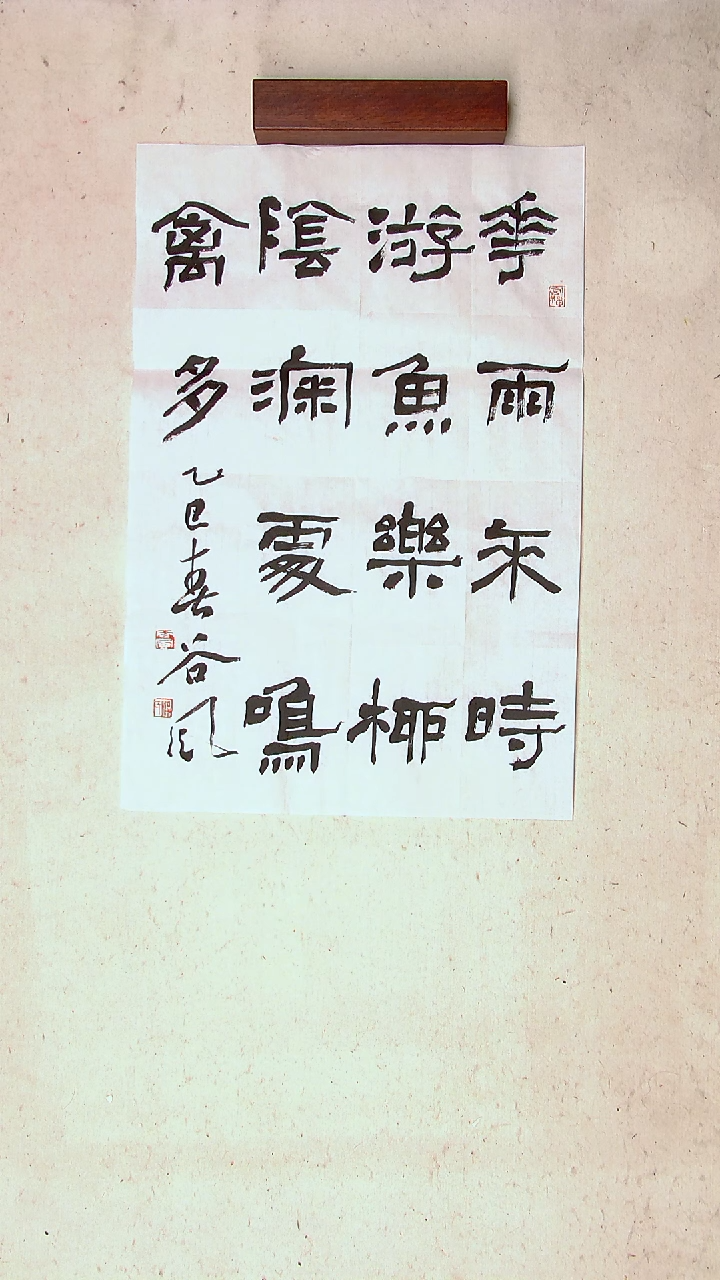 華雨来時
游魚樂柳
陰深處鳴
禽多
乙巳春谷風